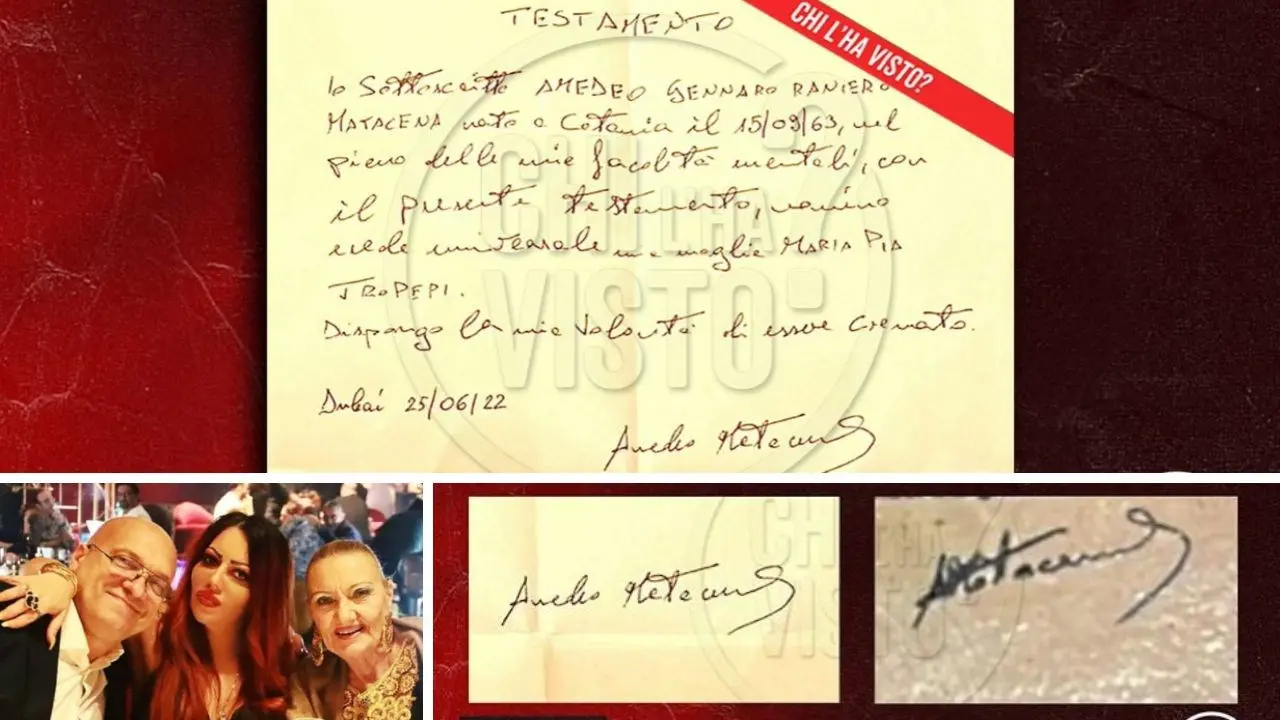 TESTAMENTO
CHI L'HA VISTO?
Io Sottoscritto AMEDEO GENNARO RANIERO
MATACENA nato a Catania il 15/09/63, nel
pieno delle mie facoltà mentali, con
il presente testamento, nomino
erede universale mia moglie MARIA PIA
TROPEPI.
Dispongo la mia volontà di essere cremato.
Dubai 25/06/22
Amedeo Matacena
CHI L'HA
VISTO?
Amedeo Matacena
CHI L'HA
VISTO
Matacena